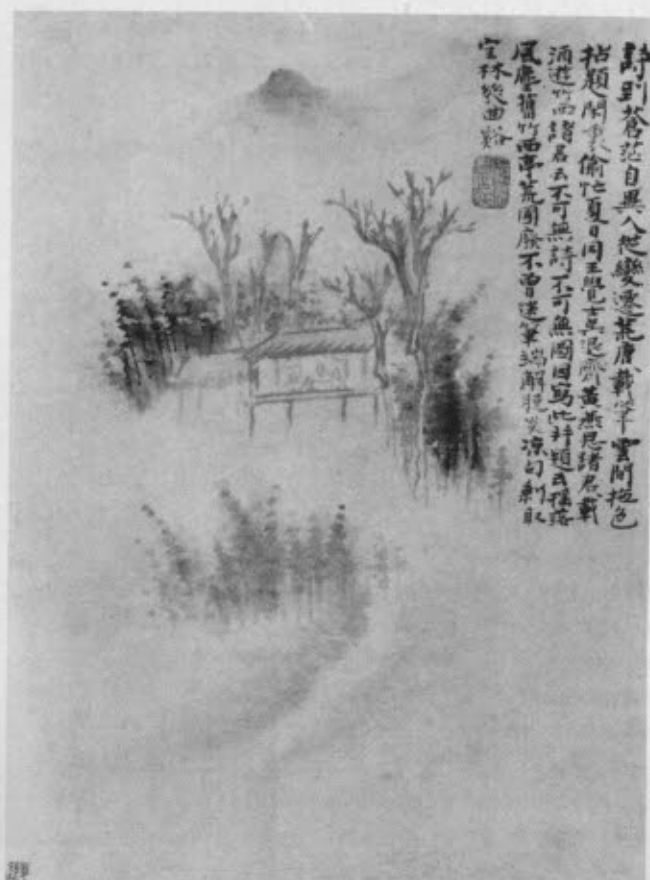 詩到蒼茫自異人從變遷荒唐載筆雲間拖色
拈題鬧裏偷忙夏日同王覺士吳退齋黃燕思諸君載
酒遊竹西諸君云不可無詩不可無圖因寫此并題云搖落
風塵舊竹西亭荒園廢不曾迷筆端解脫炎涼句剩取
空林幾曲谿